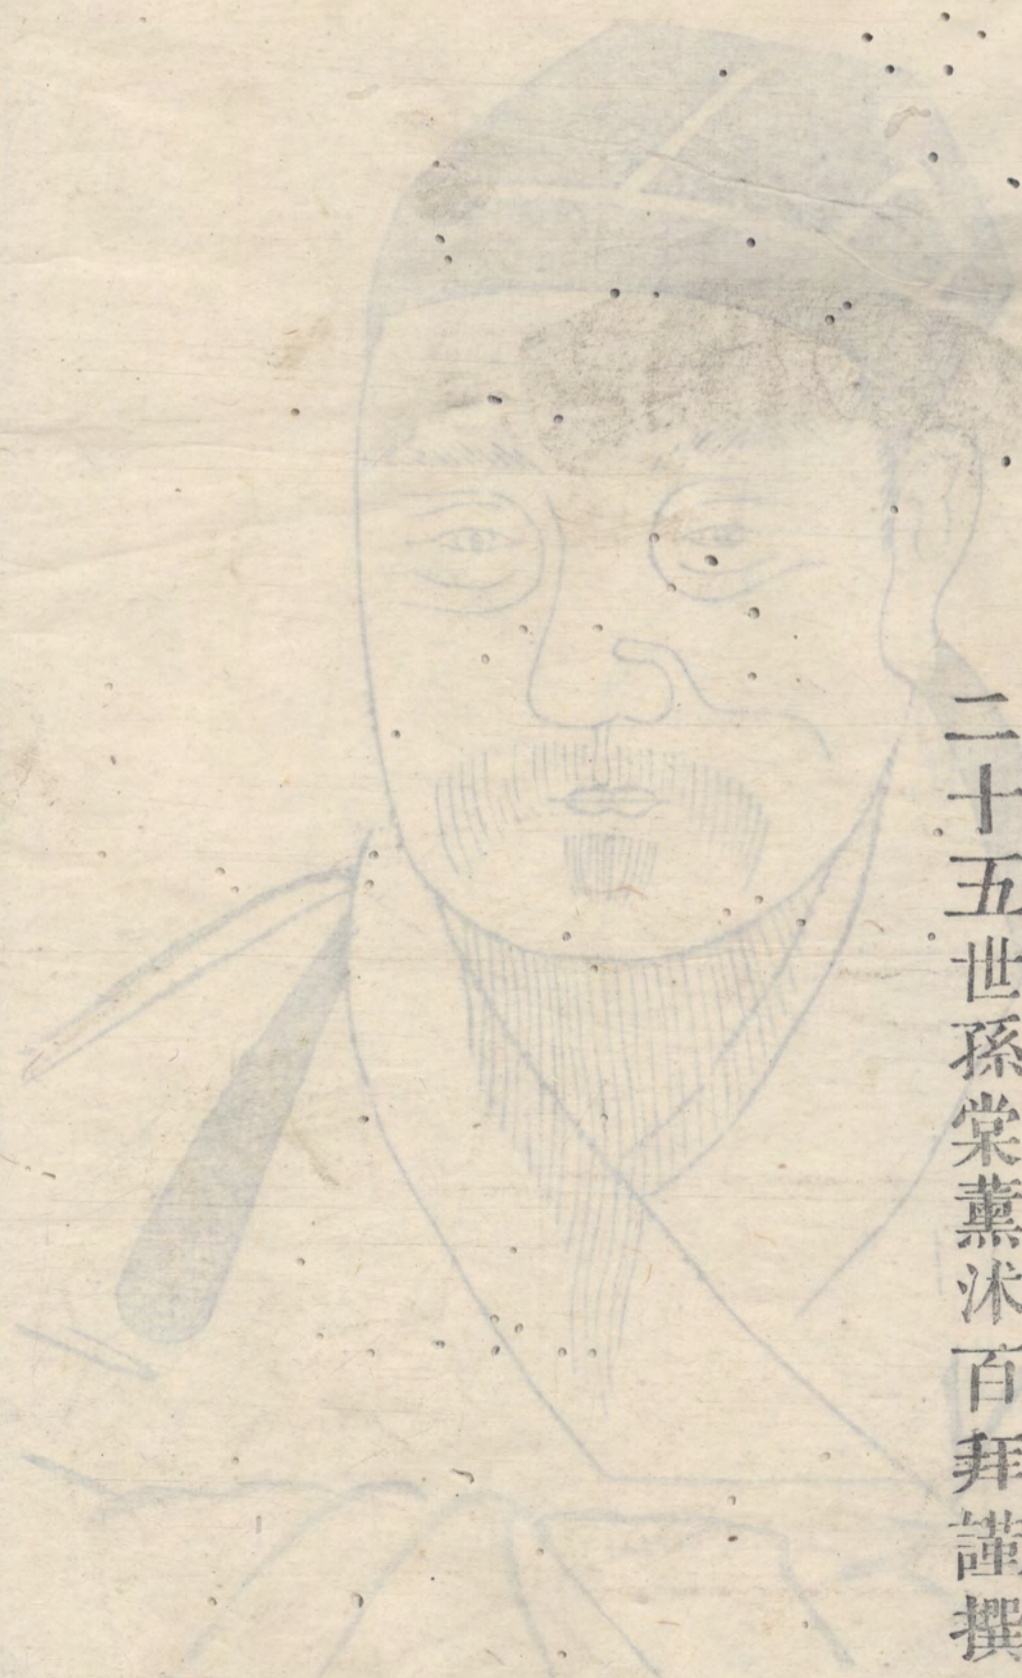 二十五世孫棠薰沐百拜謹撰